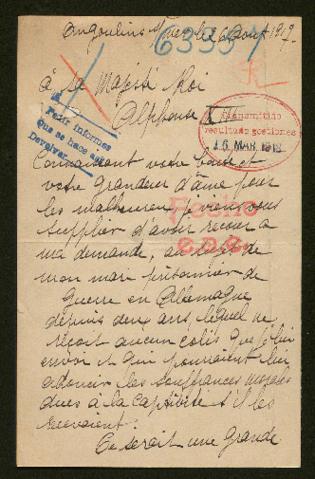 Angoulins s/ mer le 6 Août 1917.
63357
à Sa Majesté Roi
Alphonse XIII
Transmitido
resultado gestiones
16 MAR 1918
Pedir informes
Que se hace saber
Devolver
Connaissant votre bonté et
votre grandeur d'âme pour
les malheureux je viens vous
supplier d'avoir recour à
ma demande, au sujet de
mon mari prisonnier de
Guerre en Allemagne
depuis deux ans, lequel ne
reçoit aucun colis que je lui
envoi et qui pourraient lui
adoucir les souffrances morales
dues à la captivité s'il les
recevaient.
Ce serait une grande
Fecho